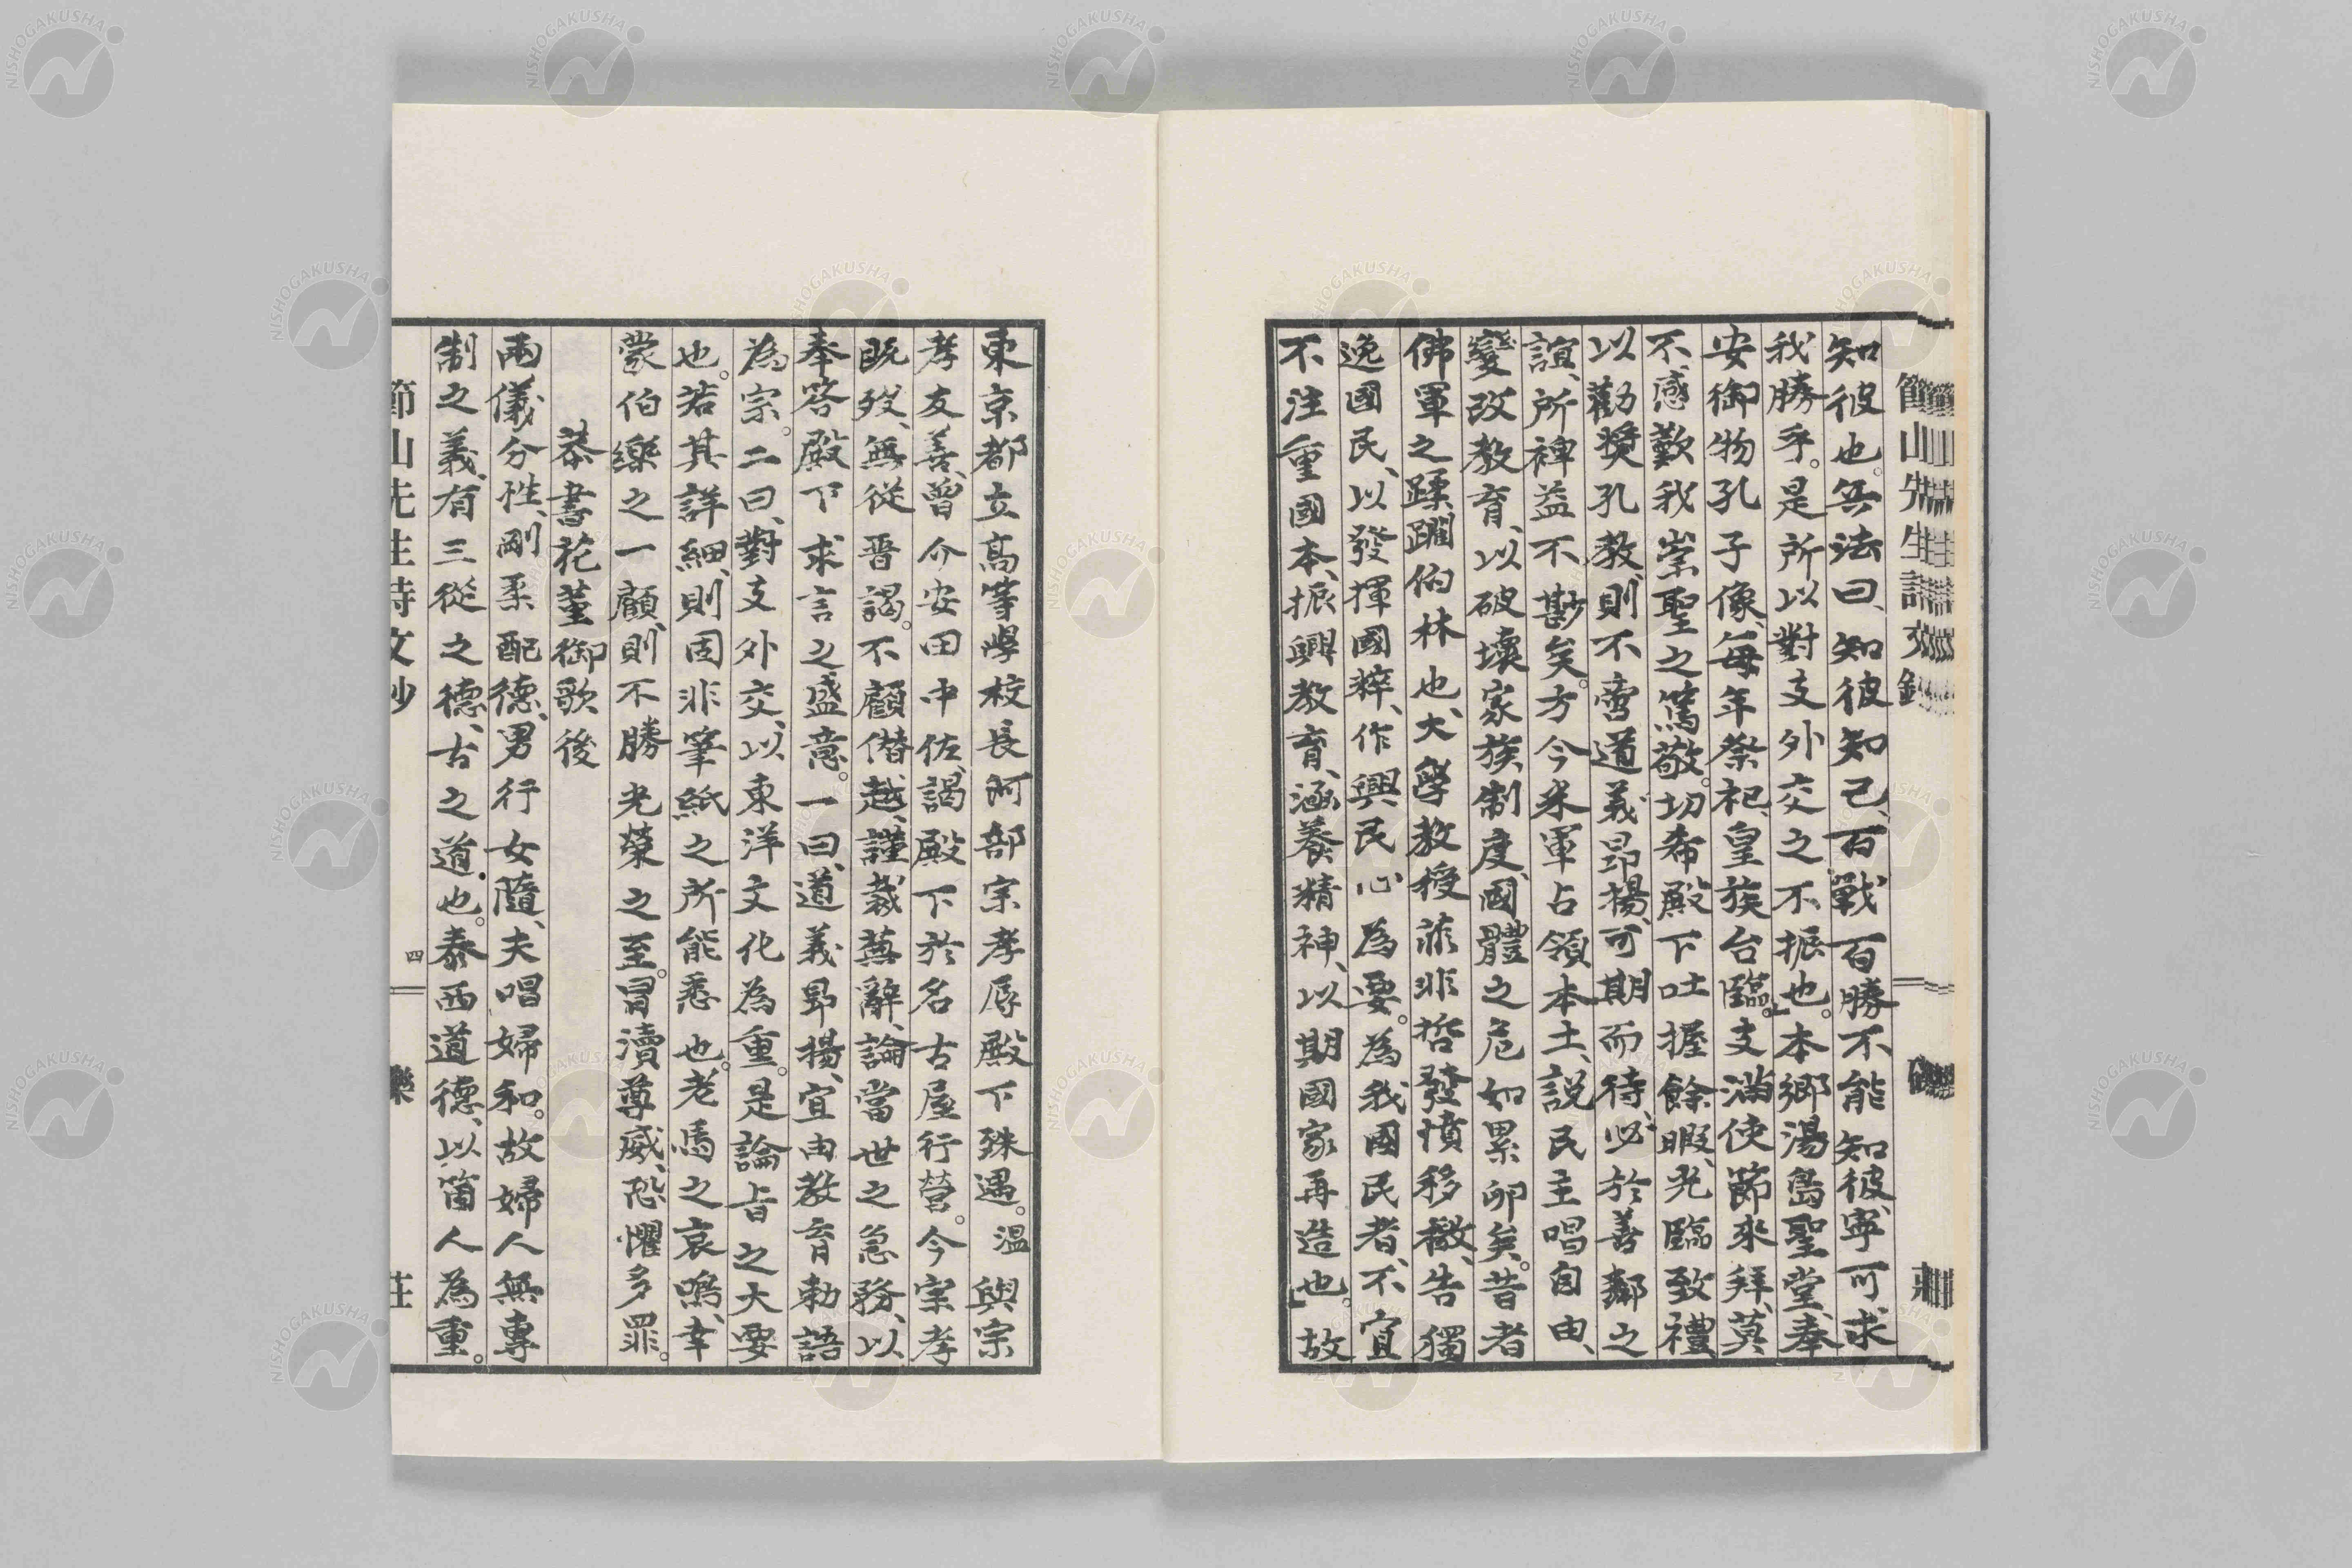 知彼也。兵法曰、知彼知己、百戰百勝不能知彼、寧可求
我勝乎。是所以對支外交之不振也。本鄉湯島聖堂、奉
安御物孔子像、每年祭祀、皇族台臨。支滿使節來拜、莫
不感歎我崇聖之篤敬。切希殿下吐握餘暇、光臨致禮
以勸奬孔教、則不啻道義昻揚、可期而待、必於善鄰之
誼、所裨益不尠矣。方今米軍占領本土、説民主唱自由、
變改教育、以破壞家族制度、國體之危如累卵矣。昔者
佛軍之蹂躙伯林也、大學教授菲非哲發憤移檄、告獨
逸國民、以發揮國粹、作興民心為要。為我國民者、不宜
不注重國本、振興教育、涵養精神、以期國家再造也。故
東京都立高等學校長阿部宗孝辱殿下殊遇。溫與宗
孝友善、曾介安田中佐、謁殿下於名古屋行營。今宗孝
既歿、無從晉謁。不顧僭越、謹裁蕪辭、論當世之急務、以
奉答殿下求言之盛意。一曰、道義昻揚、宜由教育勅語
為宗。二曰、對支外交、以東洋文化為重。是論旨之大要
也。若其詳細、則固非筆紙之所能悉也。老馬之哀鳴、幸
蒙伯樂之一顧、則不勝光榮之至。冒瀆尊威、恐懼多罪。
恭書花菫御歌後
兩儀分性、剛柔配德、男行女隨、夫唱婦和。故婦人無專
制之義、有三從之德、古之道也。泰西道德、以箇人為重。
節山先生詩文鈔
四
樂
莊